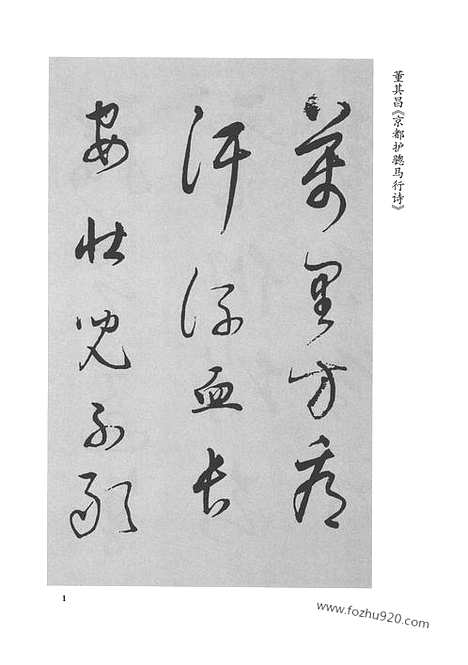 董其昌《京都护骢马行诗》
萬里方看
汗流血長
安壯兒不敢
1
www.fozhu920.com